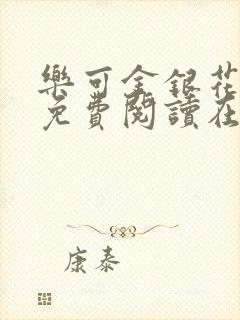 樂可金銀花
免費閱讀在
康泰